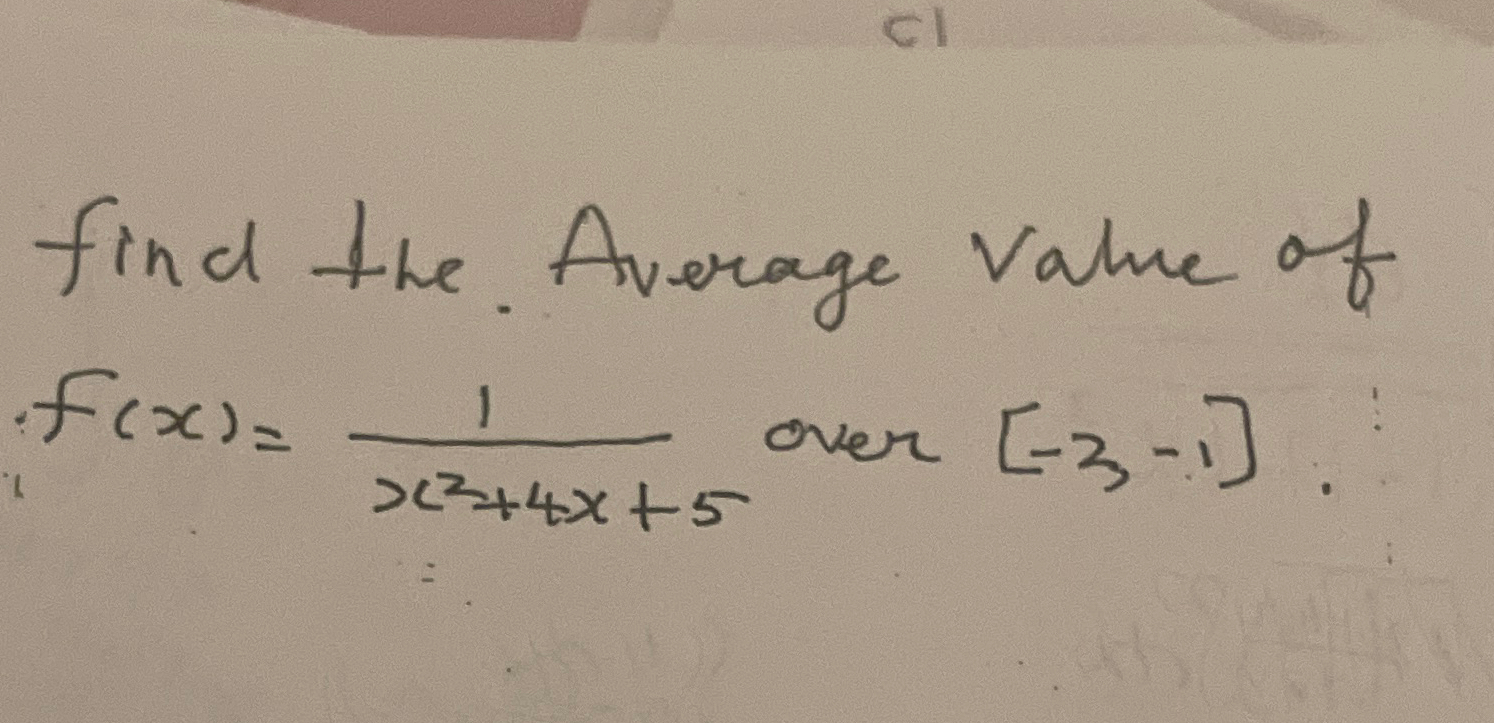 C1
find the. Average Value of
f(x) = 1/(x²+4x+5) over [-3, -1].